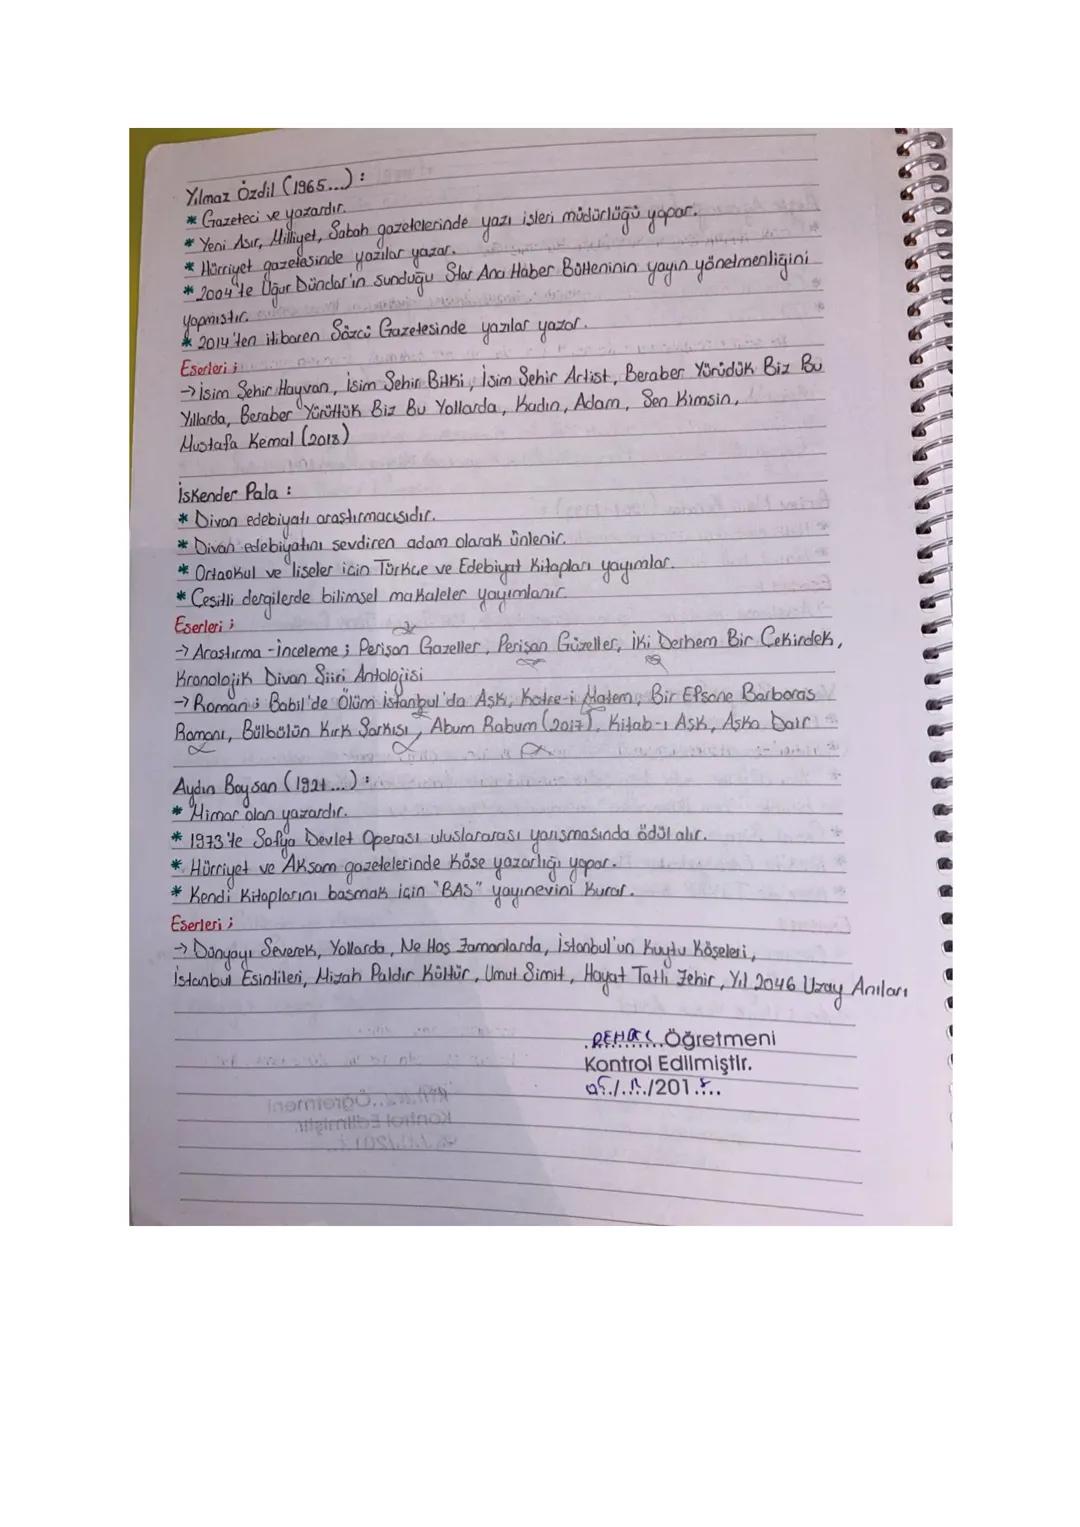 Yılmaz Özdil (1965...) :
* Gazeteci ve yazardır.
* Yeni Asır, Milliyet, Sabah gazetelerinde yazı işleri müdürlüğü yapar.
* Hürriyet gazetesinde yazılar yazar.
* 2004'te Uğur Dündar'ın sunduğu Star Ana Haber Bülteninin yayın yönetmenliğini
yapmıştır.
* 2014'ten itibaren Sözcü Gazetesinde yazılar yazar.
Eserleri ;
→ İsim Şehir Hayvan, İsim Şehir Bitki, İsim Şehir Artist, Beraber Yürüdük Biz Bu
Yıllarda, Beraber Yürüttük Biz Bu Yollarda, Kadın, Adam, Sen Kimsin,
Mustafa Kemal (2018)
İskender Pala :
* Divan edebiyatı araştırmacısıdır.
* Divan edebiyatını sevdiren adam olarak ünlenir.
* Ortaokul ve liseler için Türkçe ve Edebiyat Kitapları yayımlar.
* Çeşitli dergilerde bilimsel makaleler yayımlanır.
Eserleri ;
→ Araştırma-inceleme ; Perişan Gazeller, Perişan Güzeller, İki Derhem Bir Çekirdek,
Kronolojik Divan Şiiri Antolojisi
→ Roman ; Babil'de Ölüm İstanbul'da Aşk, Katre-i Matem, Bir Efsane Barbaros
Romanı, Bülbülün Kırk Şarkısı, Abum Rabum (2017), Kitab-ı Aşk, Aşka Dair
Aydın Boysan (1921...) :
* Mimar olan yazardır.
* 1973'te Sofya Devlet Operası uluslararası yarışmasında ödül alır.
* Hürriyet ve Akşam gazetelerinde köşe yazarlığı yapar.
* Kendi Kitaplarını basmak için "BAS" yayınevini kurar.
Eserleri ;
→ Dünyayı Severek, Yollarda, Ne Hoş Zamanlarda, İstanbul'un Kuytu Köşeleri,
İstanbul Esintileri, Mizah Paldır Kültür, Umut Simit, Hayat Tatlı Zehir, Yıl 2046 Uzay Anıları
Öğretmeni
Kontrol Edilmiştir.